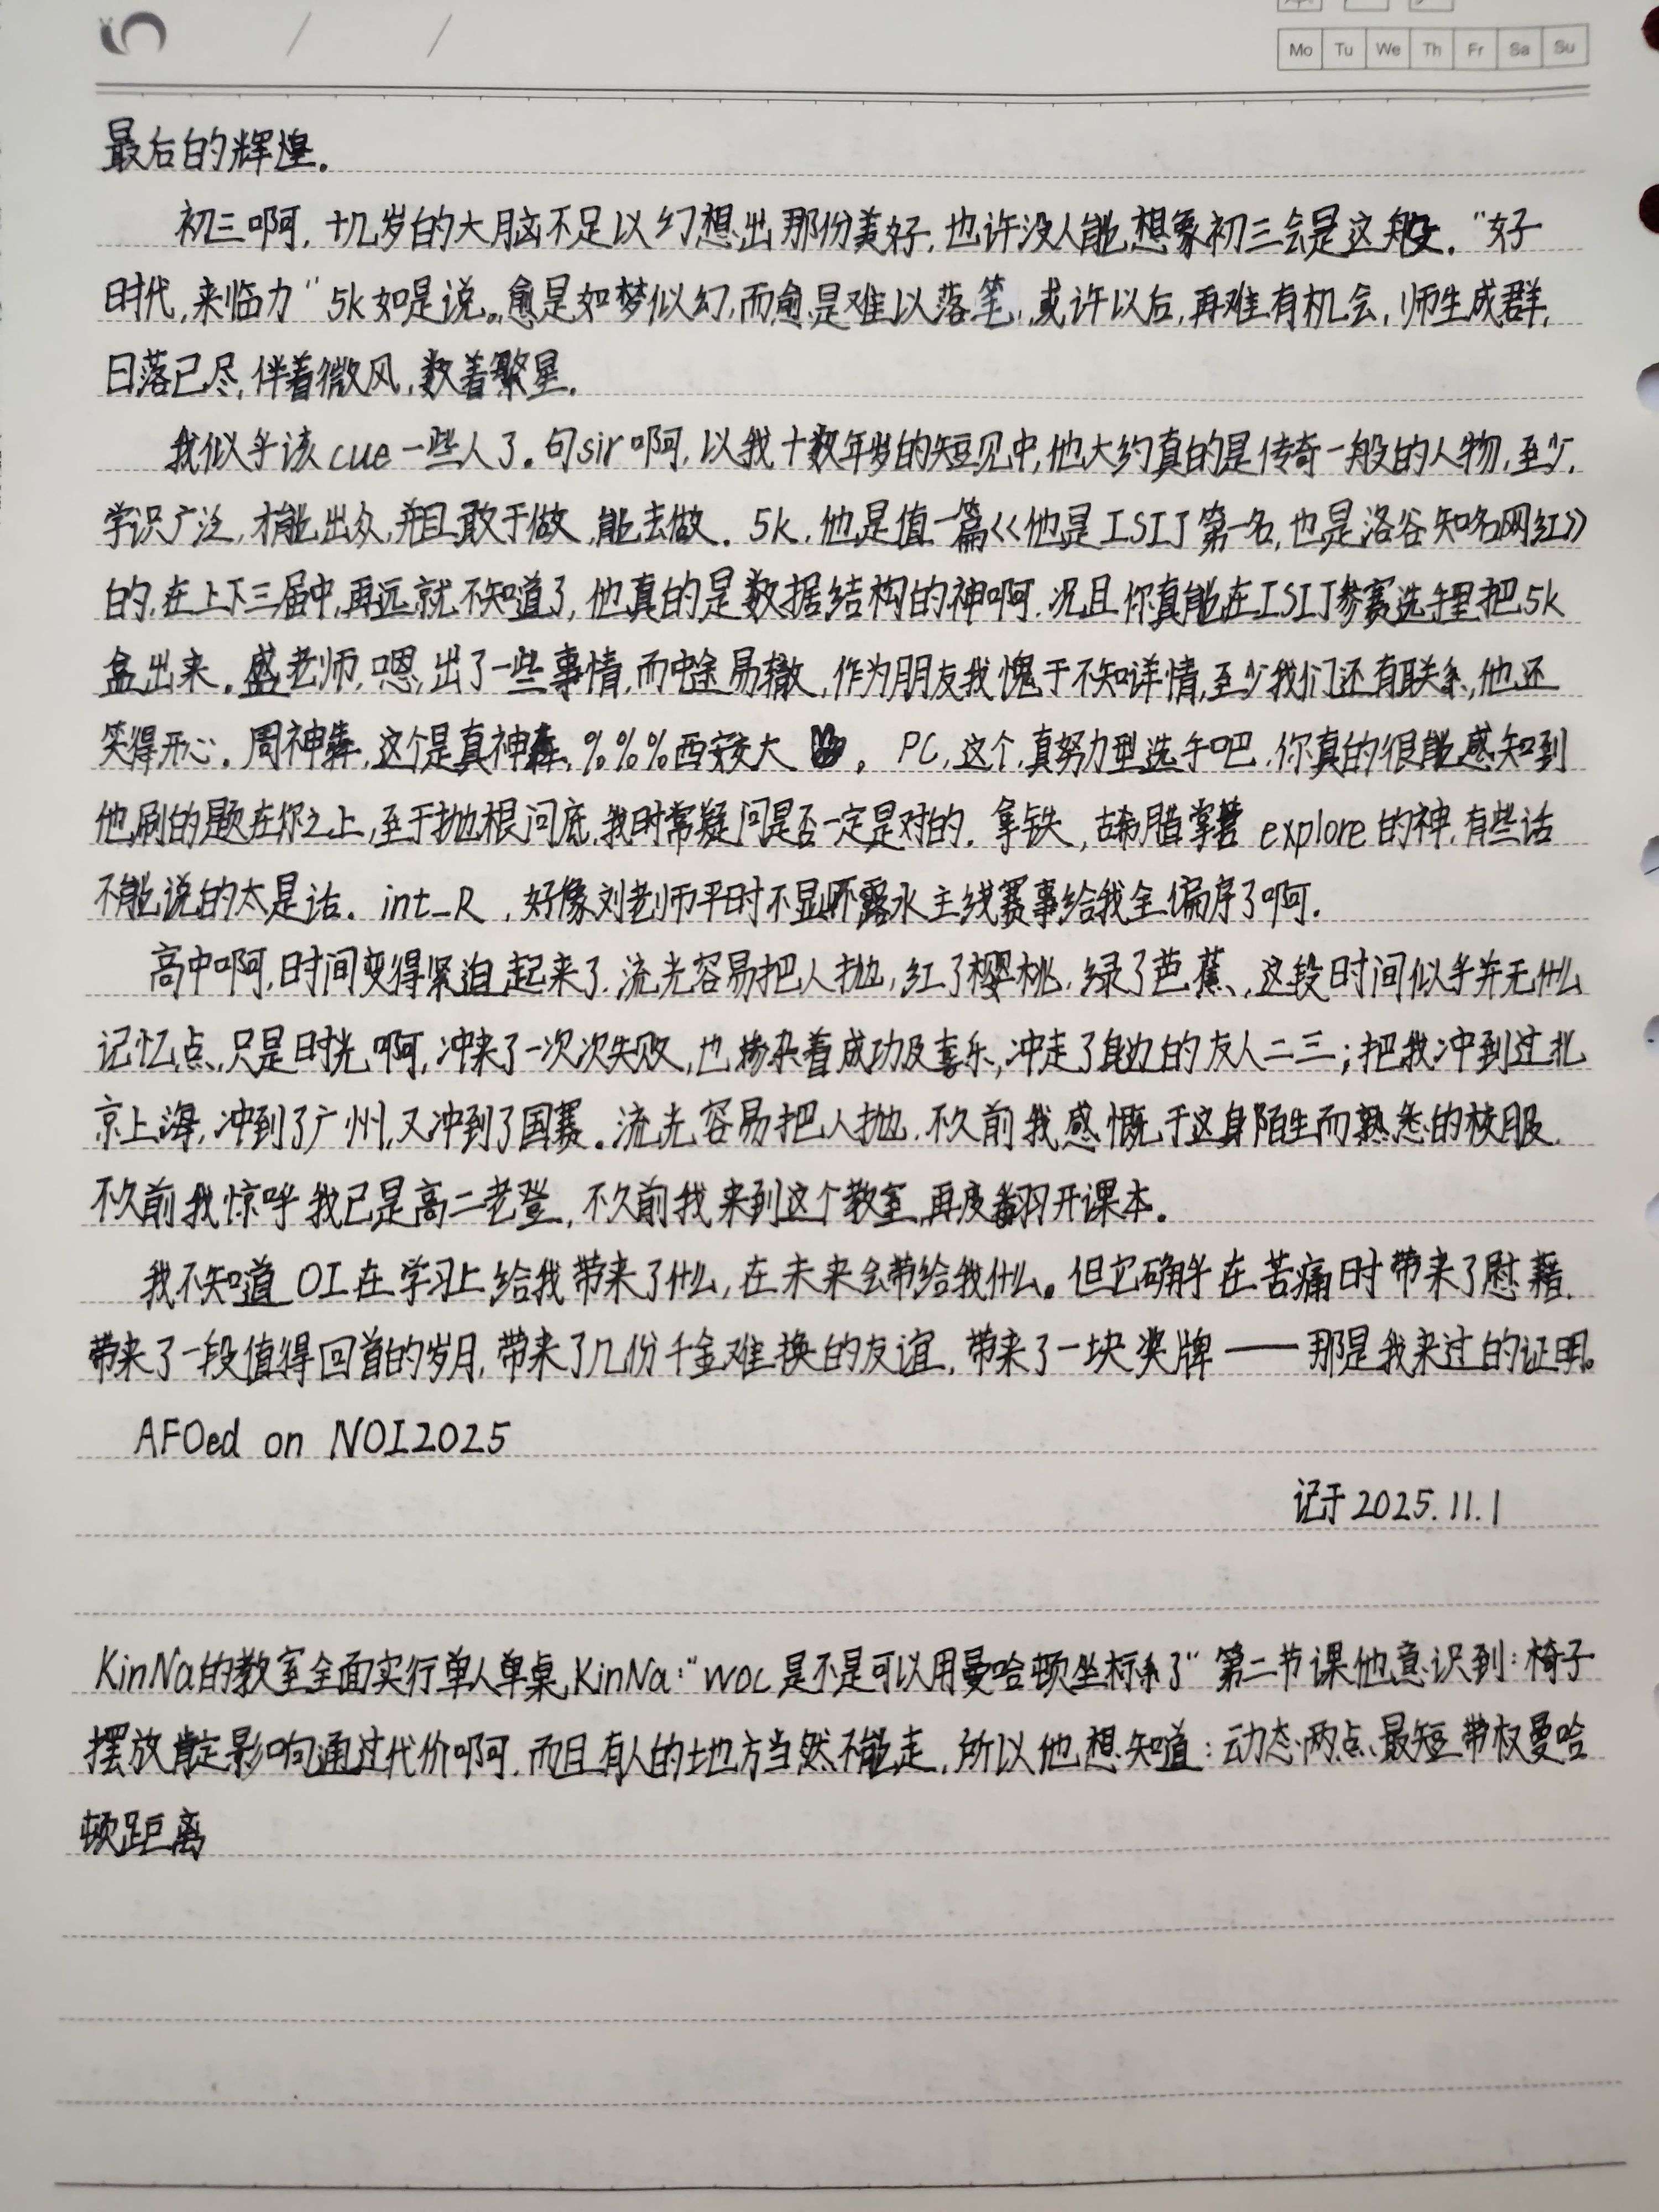 Mo Tu We Th Fr Sa Su
最后的辉煌.
初三啊,十几岁的大脑不足以幻想出那份美好,也许没人能想象初三会是这般."好
时代,来临力"5k如是说。愈是如梦似幻,而愈是难以落笔,或许以后,再难有机会,师生成群,
日落已尽,伴着微风,数着繁星.
我似乎该cue一些人了.句sir啊,以我十数年岁的短见中,他大约真的是传奇一般的人物,至少,
学识广泛,才能出众,并且敢于做,能去做.5k,他是值一篇<<他是ISIJ第一名,也是洛谷知名网红>>
的.在上下三届中,再远就不知道了,他真的是数据结构的神啊.况且你真能在ISIJ参赛选手里把5k
盒出来.盛老师,嗯,出了一些事情,而中途易辙,作为朋友我愧于不知详情,至少我们还有联系,他还
笑得开心.周神犇,这个是真神犇,%%%西安交大.PC,这个,真努力型选手吧.你真的很能感知到
他刷的题在你之上,至于抛根问底,我时常疑问是否一定是对的.拿铁,古希腊掌管explore的神,有些话
不能说的太是话.int_R,好像刘老师平时不显山露水主线赛事给我全偏序了啊.
高中啊,时间变得紧迫起来了.流光容易把人抛,红了樱桃,绿了芭蕉,这段时间似乎并无什么
记忆点,只是时光啊,冲来了一次次失败,也掺杂着成功及喜乐,冲走了身边的友人二三;把我冲到过北
京上海,冲到了广州,又冲到了国赛.流光容易把人抛.不久前我感慨于这身陌生而熟悉的校服.
不久前我惊呼我已是高二老登,不久前我来到这个教室,再度翻开课本.
我不知道OI在学习上给我带来了什么,在未来会带给我什么.但它确乎在苦痛时带来了慰藉.
带来了一段值得回首的岁月,带来了几份千金难换的友谊,带来了一块奖牌——那是我来过的证明。
AFOed on NOI2025
记于2025.11.1
KinNa的教室全面实行单人单桌,KinNa:"woc是不是可以用曼哈顿坐标系了"第二节课他意识到:椅子
摆放肯定影响通过代价啊.而且有人的地方当然不能走,所以他想知道:动态两点最短带权曼哈
顿距离